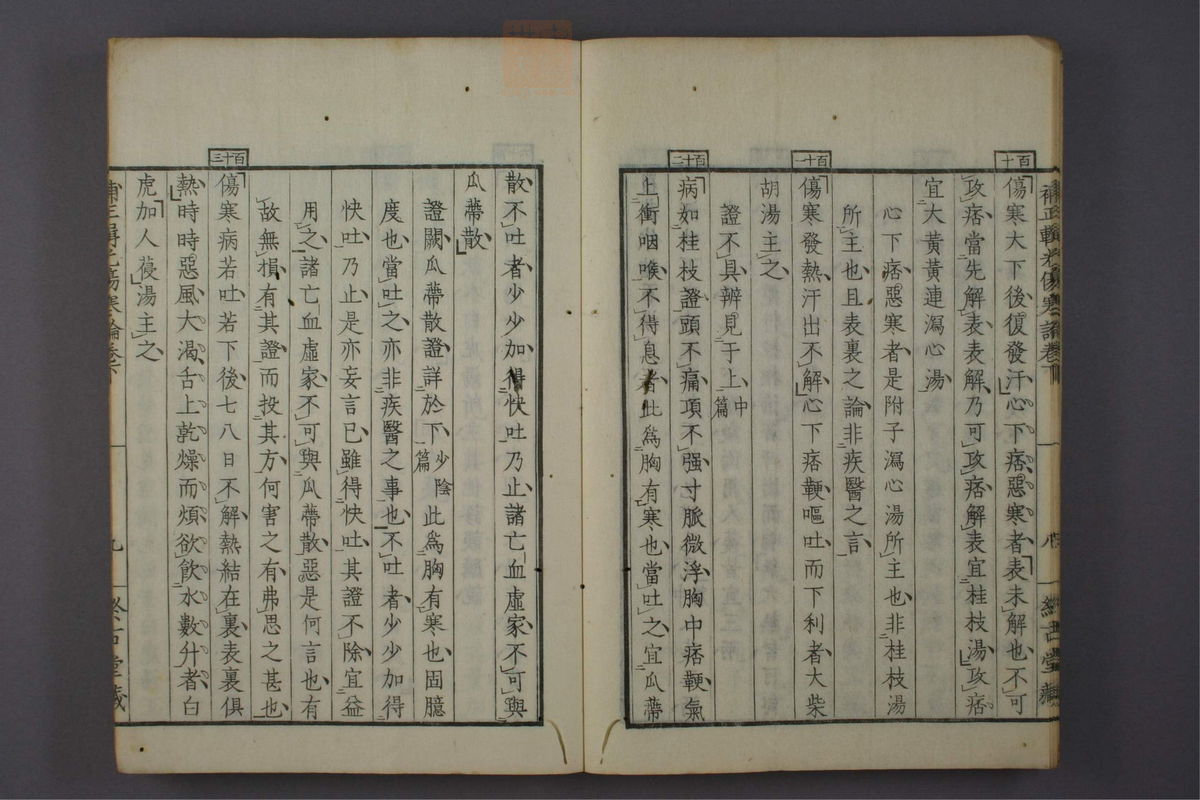 百十
傷寒大下後復發汗心下痞惡寒者表未解也不可
攻痞當先解表表解乃可攻痞解表宜桂枝湯攻痞
宜大黃黃連瀉心湯
心下痞惡寒者是附子瀉心湯所主也非桂枝湯
所主也且表裏之論非疾醫之言
百十一
傷寒發熱汗出不解心下痞鞕嘔吐而下利者大柴
胡湯主之
證不具辨見于上中篇
百十二
病如桂枝證頭不痛項不强寸脈微浮胸中痞鞕氣
上衝咽喉不得息者此爲胸有寒也當吐之宜瓜蔕
散不吐者少少加得快吐乃止諸亡血虛家不可與
瓜蔕散
證闕瓜蔕散證詳於下少陰篇此爲胸有寒也固臆
度也當吐之亦非疾醫之事也不吐者少少加得
快吐乃止是亦妄言已雖得快吐其證不除宜益
用之諸亡血虛家不可與瓜蔕散惡是何言也有
故無損有其證而投其方何害之有弗思之甚也
百十三
傷寒病若吐若下後七八日不解熱結在裏表裏俱
熱時時惡風大渴舌上乾燥而煩欲飮水數升者白
虎加人葠湯主之